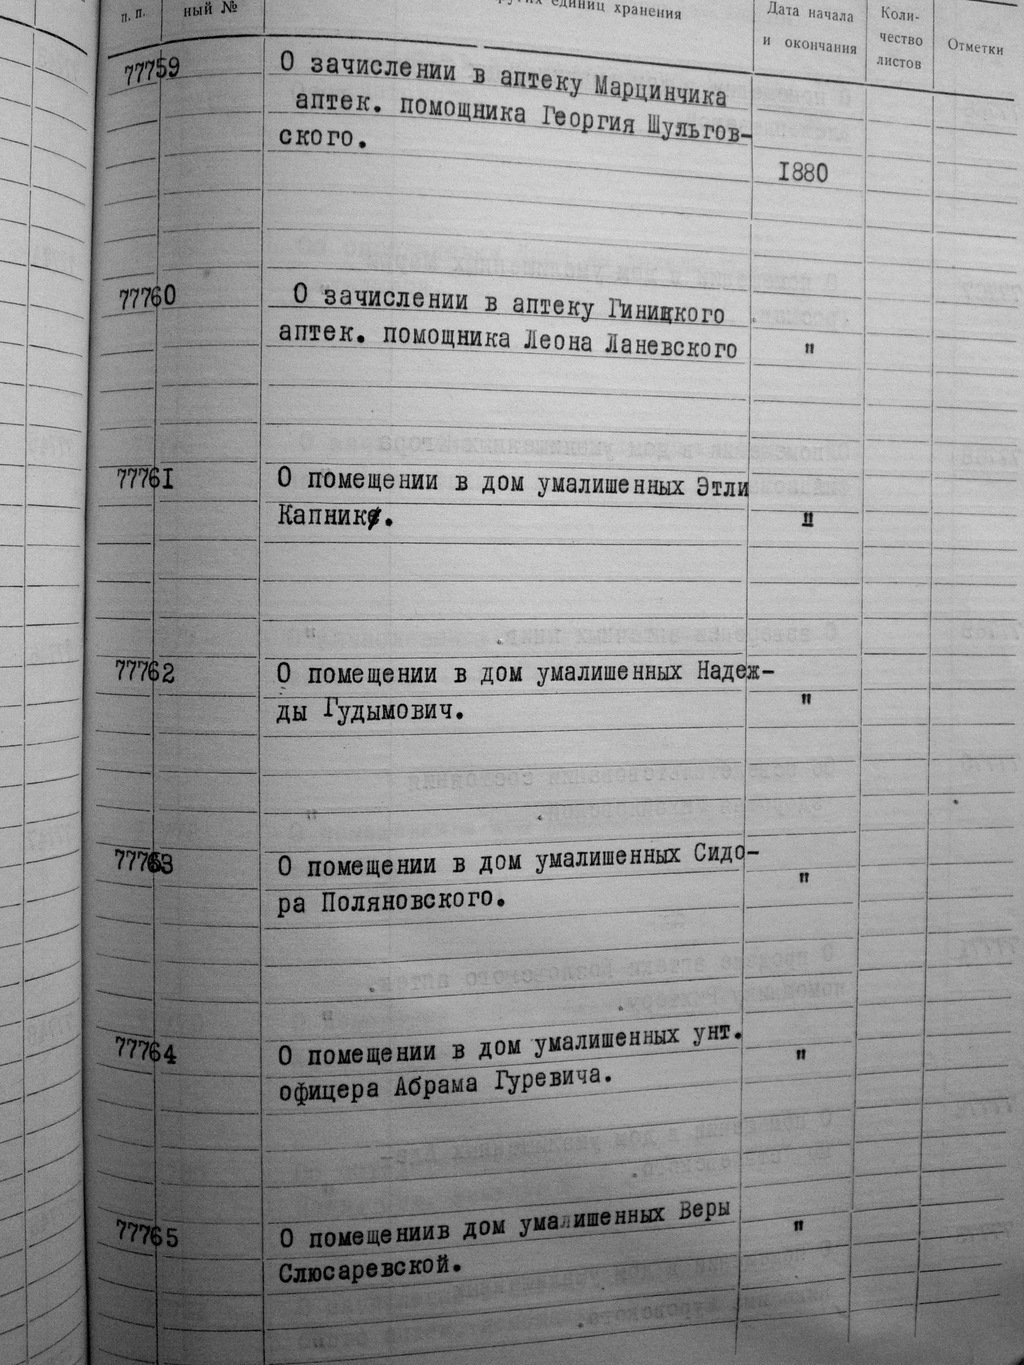 п. п.
ный №
других единиц хранения
Дата начала
и окончания
Коли-
чество
листов
Отметки
77759
О зачислении в аптеку Марцинчика
аптек. помощника Георгия Шульгов-
ского.
1880
77760
О зачислении в аптеку Гиницкого
аптек. помощника Леона Ланевского
"
77761
О помещении в дом умалишенных Этли
Капник.
"
77762
О помещении в дом умалишенных Надеж-
ды Гудымович.
"
77763
О помещении в дом умалишенных Сидо-
ра Поляновского.
"
77764
О помещении в дом умалишенных унт.
офицера Абрама Гуревича.
"
77765
О помещениив дом умалишенных Веры
Слюсаревской.
"